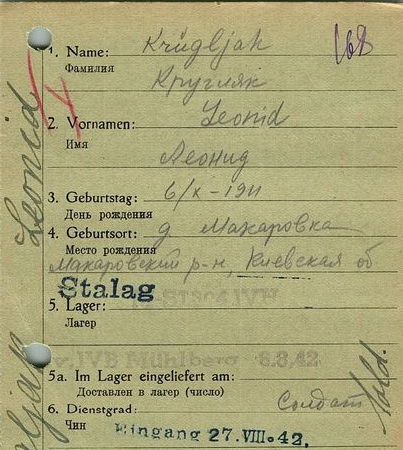 1. Name: Krügljak 168
Фамилия
Кругляк
2. Vornamen: Leonid
Имя
Леонид
3. Geburtstag: 6/X-1911
День рождения
4. Geburtsort: д Макаровка
Место рождения
Макаровский р-н, Киевская об
Stalag
5. Lager:
Лагер
IVB Mühlberg 8.42
5a. Im Lager eingeliefert am:
Доставлен в лагер (число)
6. Dienstgrad: Солдат Sold.
Чин
Eingang 27. VIII. 42.
Leonid